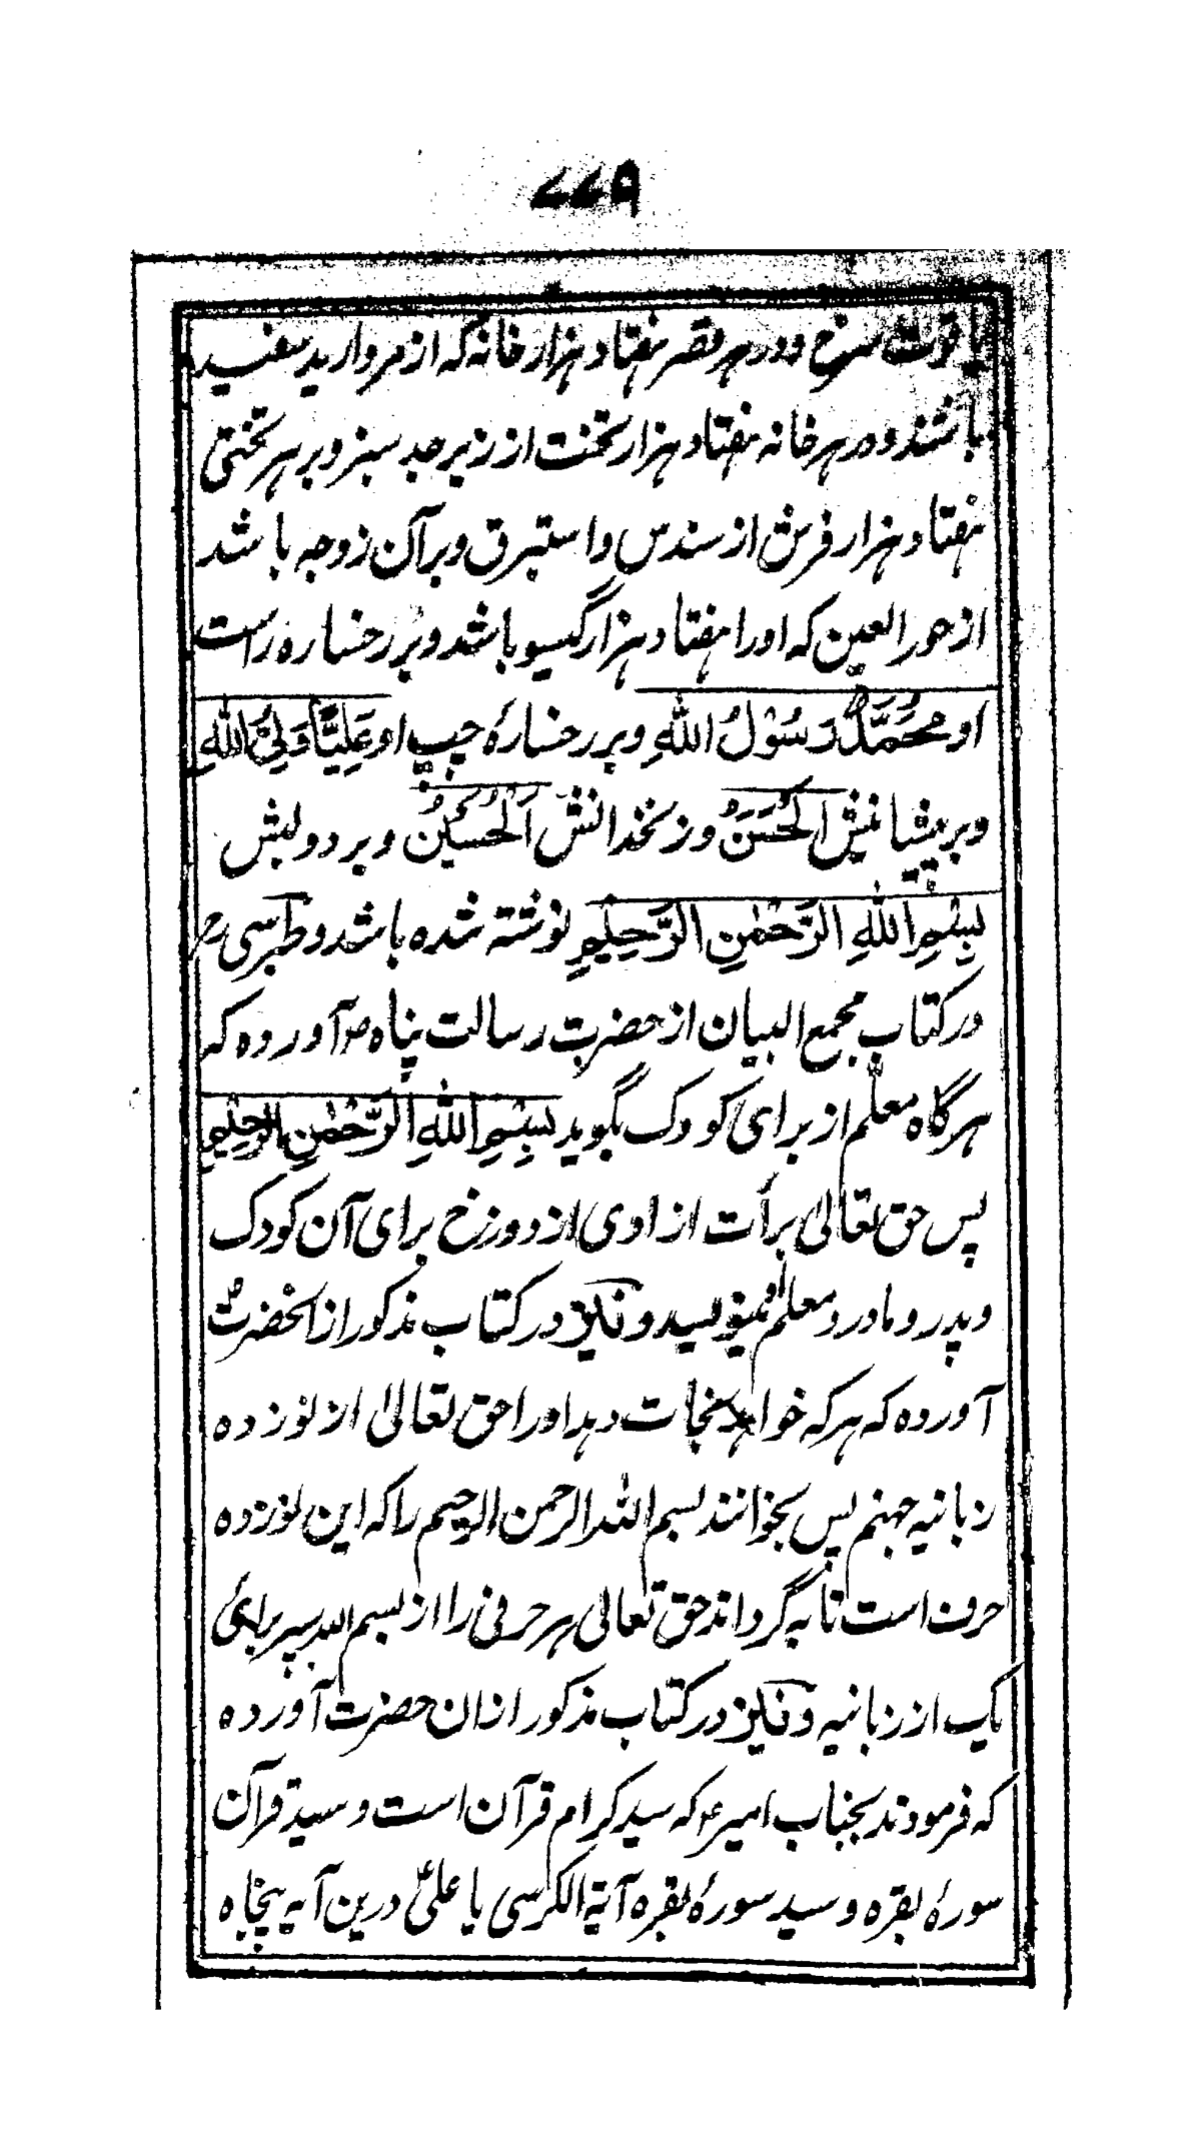 ۷۷۹
یاقوت سرخ و در هر قصر هفتاد هزار خانه که از مروارید سفید
باشند و در هر خانه هفتاد هزار تخت از زبرجد سبز و بر هر تختی
هفتاد هزار فرش از سندس و استبرق و بر آن زوجه باشد
از حور العین که او را هفتاد هزار گیسو باشد و بر رخساره راست
او مُحَمَّدٌ رَسُوْلُ اللهِ و بر رخسارهٔ چپ او عَلِیًّا وَلِیُّ اللهِ
و بر پیشانیش اَلْحَسَنُ و زنخدانش اَلْحُسَیْنُ و بر دو لبش
بِسْمِ اللهِ الرَّحْمٰنِ الرَّحِیْمِ نوشته شده باشد و طبرسی رح
در کتاب مجمع البیان از حضرت رسالت پناه ص آورده که
هرگاه معلم از برای کودک بگوید بِسْمِ اللهِ الرَّحْمٰنِ الرَّحِیْمِ
پس حق تعالیٰ برأت از اوی از دوزخ برای آن کودک
و پدر و مادر و معلم مینویسد و نیز در کتاب مذکور از آنحضرت ص
آورده که هر که خواهد نجات دهد او را حق تعالیٰ از نوزده
زبانیه جهنم پس بخوانند بسم الله الرحمن الرحیم را که این نوزده
حرف است تا به گرداند حق تعالی هر حرفی را از بسم الله سپر برای
یک از زبانیه و نیز در کتاب مذکور از ان حضرت آورده
که فرمودند بجناب امیر ع که سید کرام قرآن است و سید قرآن
سورهٔ بقره و سید سورهٔ بقره آیة الکرسی یا علی ع درین آیه پنجاه